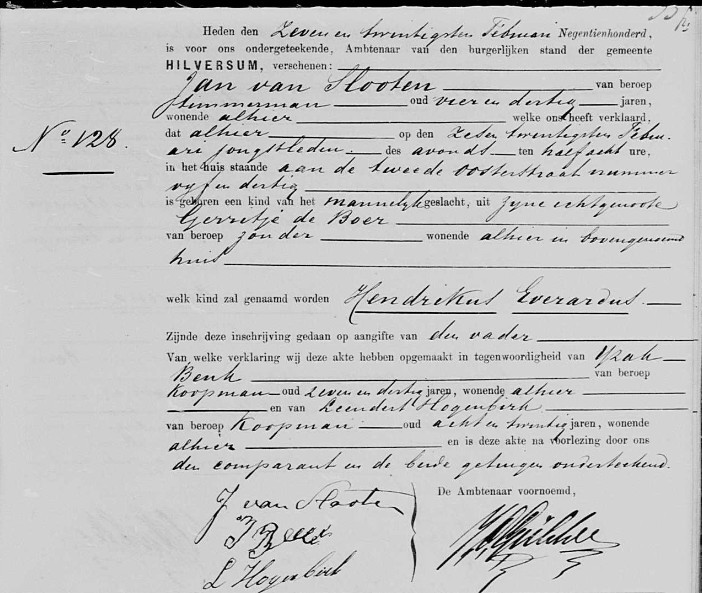 Heden den Zeven en twintigsten Februari Negentienhonderd,
is voor ons ondergeteekende, Ambtenaar van den burgerlijken stand der gemeente
HILVERSUM, verschenen:
Jan van Slooten van beroep
timmerman oud vier en dertig jaren,
wonende alhier welke ons heeft verklaard,
dat alhier op den Zes en twintigsten Febru-
ari jongstleden des avonds ten half acht ure,
No 128.
in het huis staande aan de tweede Oosterstraat nummer
vijf en dertig
is geboren een kind van het mannelijk geslacht, uit zijne echtgenoote
Gerritje de Boer
van beroep zonder wonende alhier in bovengenoemd
huis
welk kind zal genaamd worden Hendrikus Everardus.
Zijnde deze inschrijving gedaan op aangifte van den vader
Van welke verklaring wij deze akte hebben opgemaakt in tegenwoordigheid van Yzak
van beroep
Koopman oud zeven en dertig jaren, wonende alhier
en van Leendert Hogenbirk
van beroep Koopman oud acht en twintig jaren, wonende
alhier en is deze akte na voorlezing door ons
den comparant en de beide getuigen onderteekend.
De Ambtenaar voornoemd,
J van Slooten
L Hogenbirk